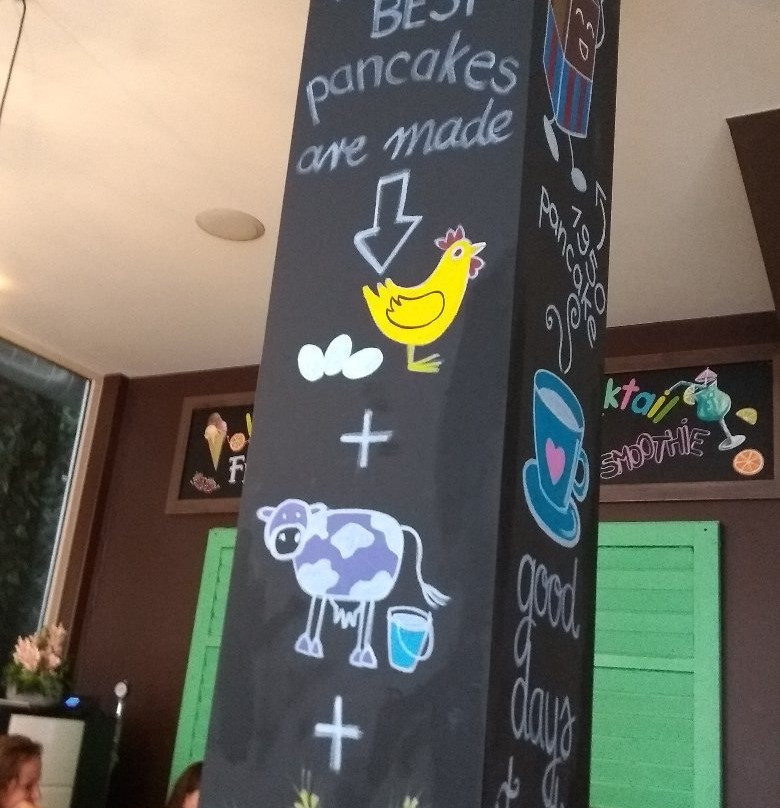 BEST
pancakes
are made
+
+
1950
pancake
good
days
ktail
SMOOTHIE
F